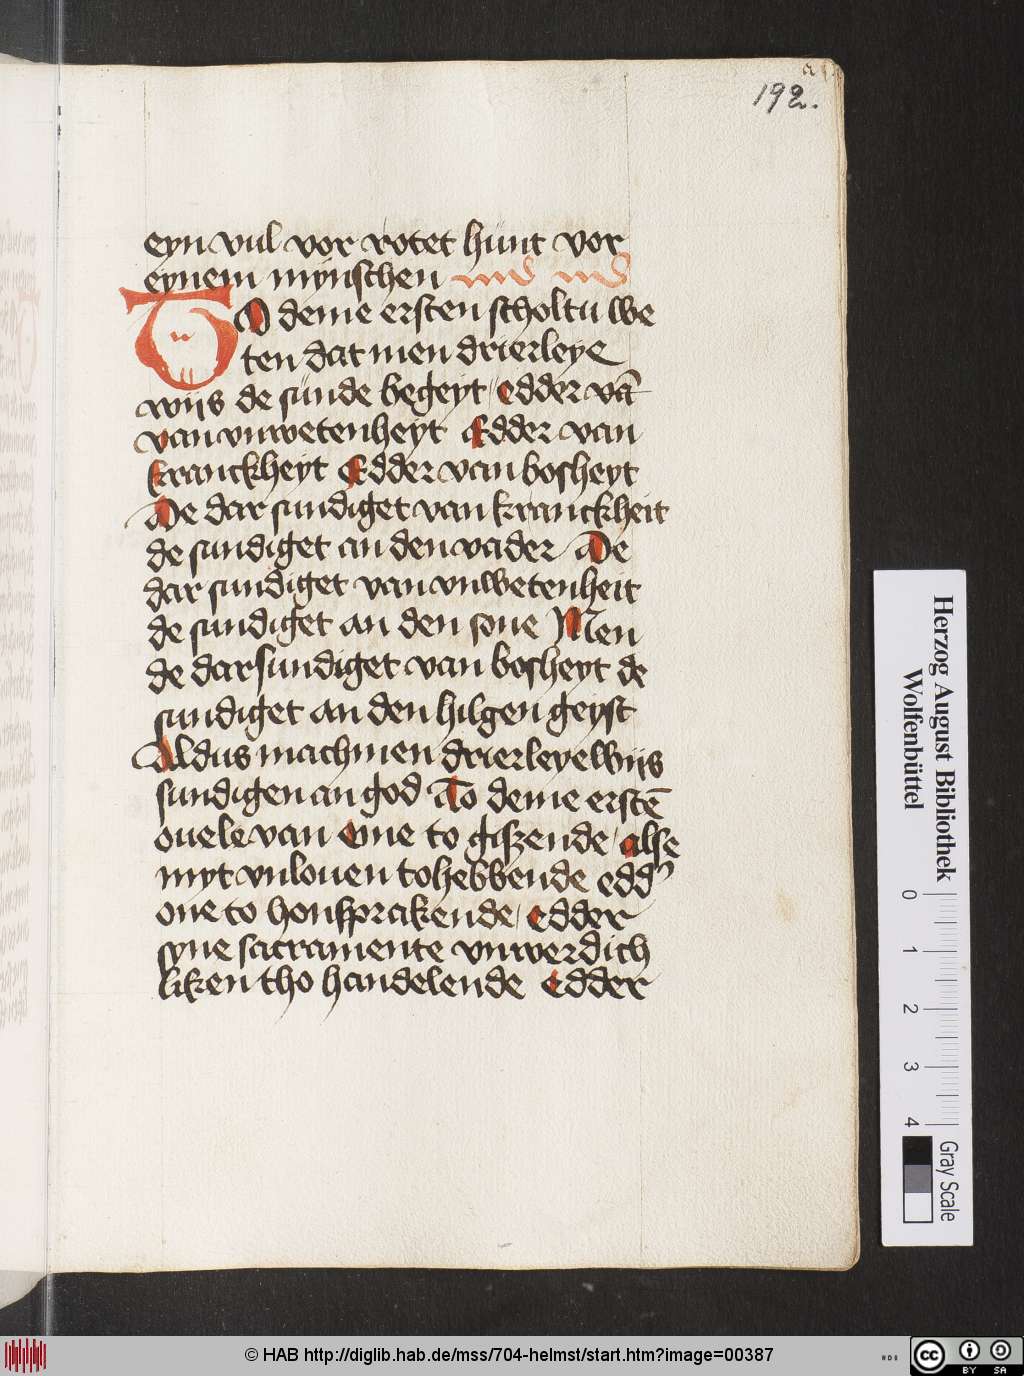 192.
eyn vul vor rotet hunt vor
eynem mynschen
TO deme ersten scholtu we
ten dat men drierleye
wijs de sunde begeyt edder vā
van vnwetenheyt Edder van
kranckheyt Edder van bosheyt
De dar sundiget van kranckheit
de sundiget an den vader De
dar sundiget van vnwetenheit
de sundiget an den sone Men
de dar sundiget van bosheyt de
sundiget an den hilgen geyst
Aldus mach men drierleye wijs
sundigen an god To deme erstē
ouele van eme to giszende alse
myt vnlouen to hebbende edd'
one to honsprakende edder
syne sacramente vnwerdich
liken tho handelende edder
Herzog August Bibliothek
Wolfenbüttel
0 1 2 3 4
Gray Scale
© HAB http://diglib.hab.de/mss/704-helmst/start.htm?image=00387
cc BY SA